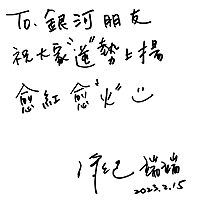 To. 銀河朋友
祝大家"道"勢上揚
愈紅愈"火" :)
瑞瑞
2023.2.15